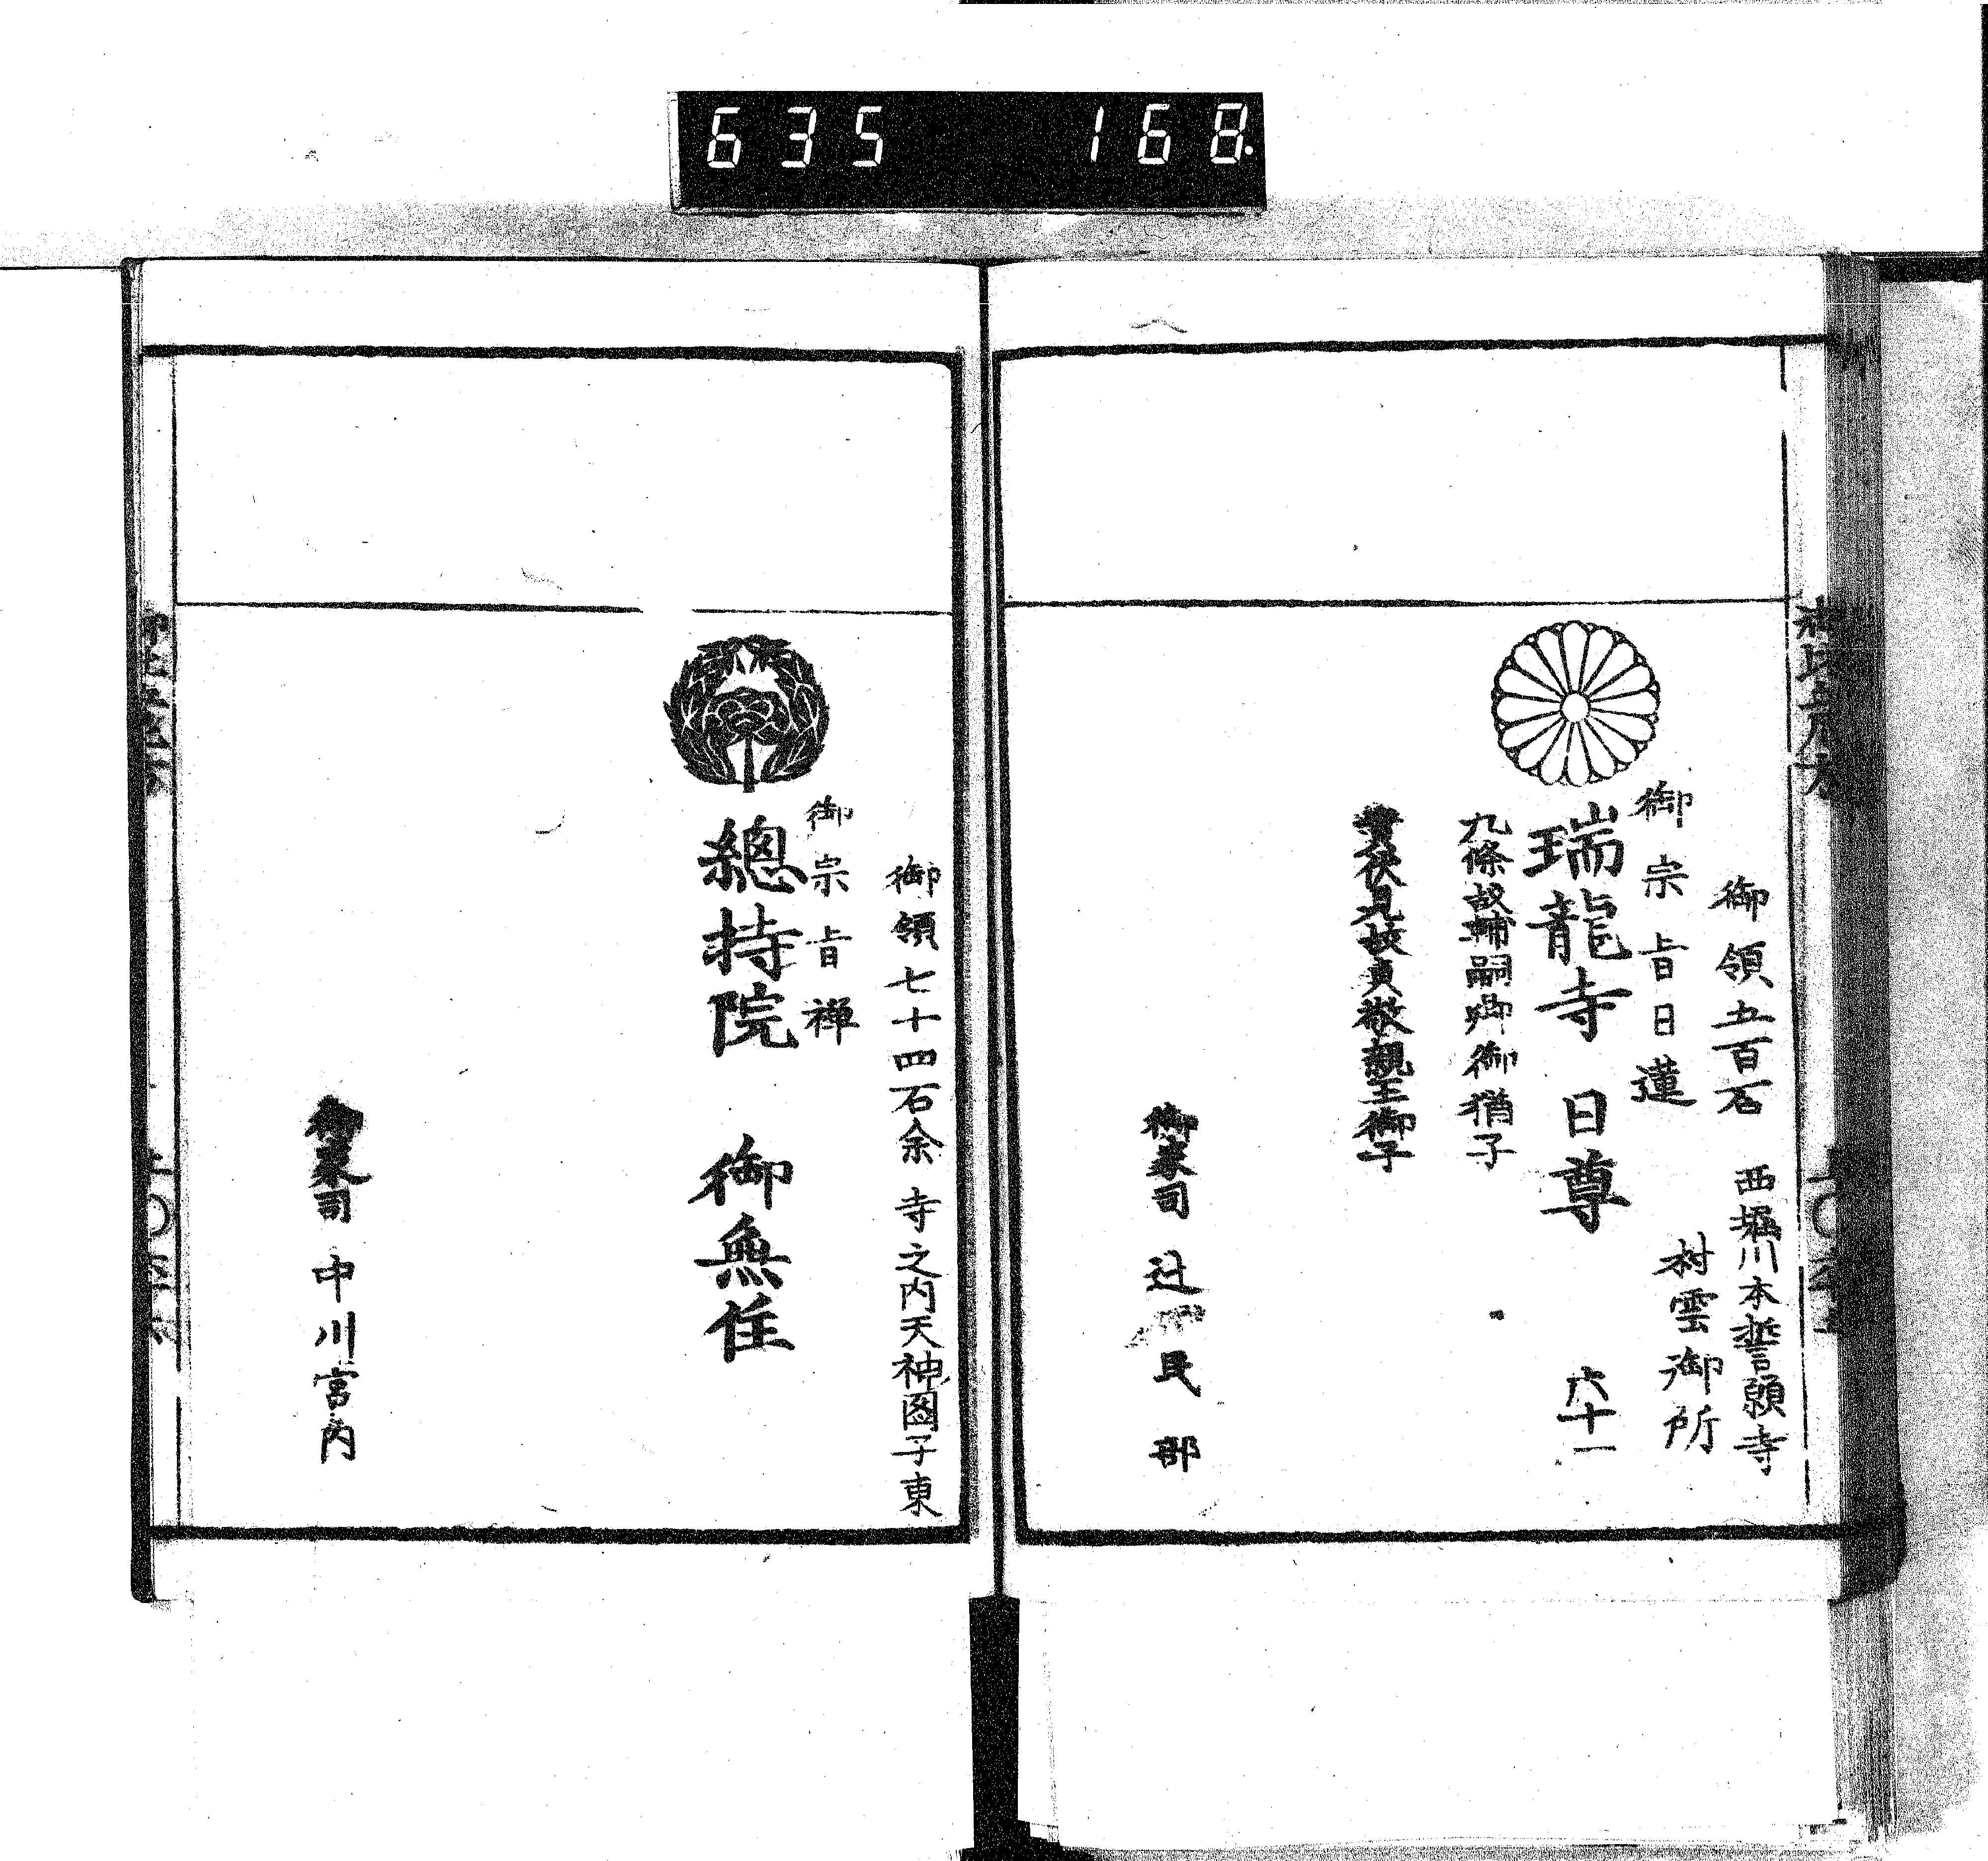 635 168.
御領五百石 西堀川本誓願寺
村雲御所
御宗旨日蓮
瑞龍寺 日尊 六十一
九條故輔嗣卿御猶子
實伏見故貞敬親王御子
御家司 辻 民部
御領七十四石余 寺之内天神図子東
御宗旨禅
總持院 御無住
御家司 中川宮内